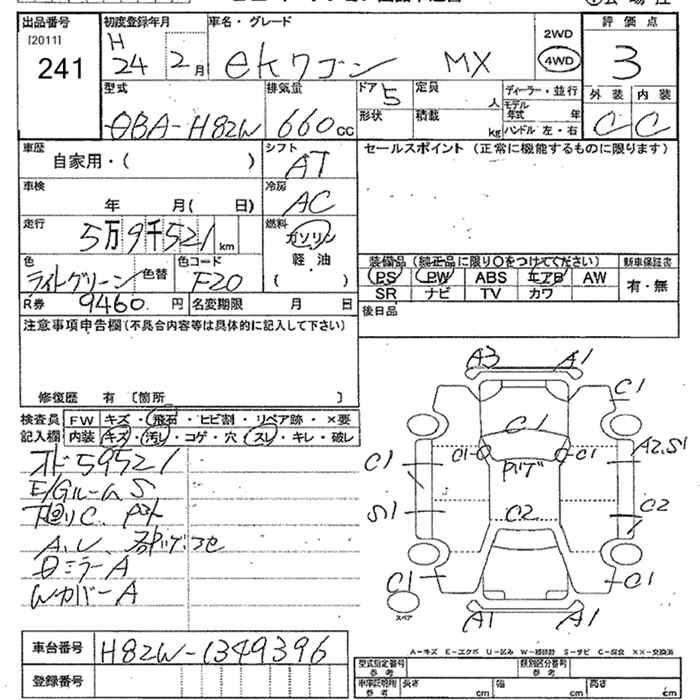 出品番号 初度登録年月 車名・グレード 2WD 評価点
[2011] H 24 2月 eKワゴン MX 4WD 3
241
型式 排気量 ドア 5 定員 人 ディーラー・並行 外装 内装
DBA-H82W 660cc 形状 積載 kg モデル年式 年 C C
ハンドル 左・右
車歴 自家用・( ) シフト AT セールスポイント (正常に機能するものに限ります)
車検 年 月( 日) 冷房 AC
走行 5万9千521km 燃料 ガソリン
軽・油
( )
色 ライトグリーン 色替 色コード F20
装備品 (純正品に限り○をつけてください) 新車保証書
PS PW ABS エアB AW 有・無
SR ナビ TV カワ
R券 9460 円 名変期限 月 日 後日品
注意事項申告欄 (不具合内容等は具体的に記入して下さい)
修復歴 有 〔箇所 〕
検査員 FW キズ・飛石・ヒビ割・リペア跡・×要
記入欄 内装 キズ・汚レ・コゲ・穴・スレ・キレ・破レ
オド59521
E/GルームS
下回りC
A.U
Dミラー A
Wカバー A
A3 A1
C1
C1
C1 C1
C1 A2.S1
S1 C2 C2
C1 C1
スペア
A1 A1
A-キズ E-エクボ U-凹み W-補修跡 S-サビ C-腐食 XX-交換済
車台番号 H82W-1349396
登録番号
型式指定番号 参考 類別区分番号
車庫証明用 参考 長さ cm 幅 cm 高さ cm